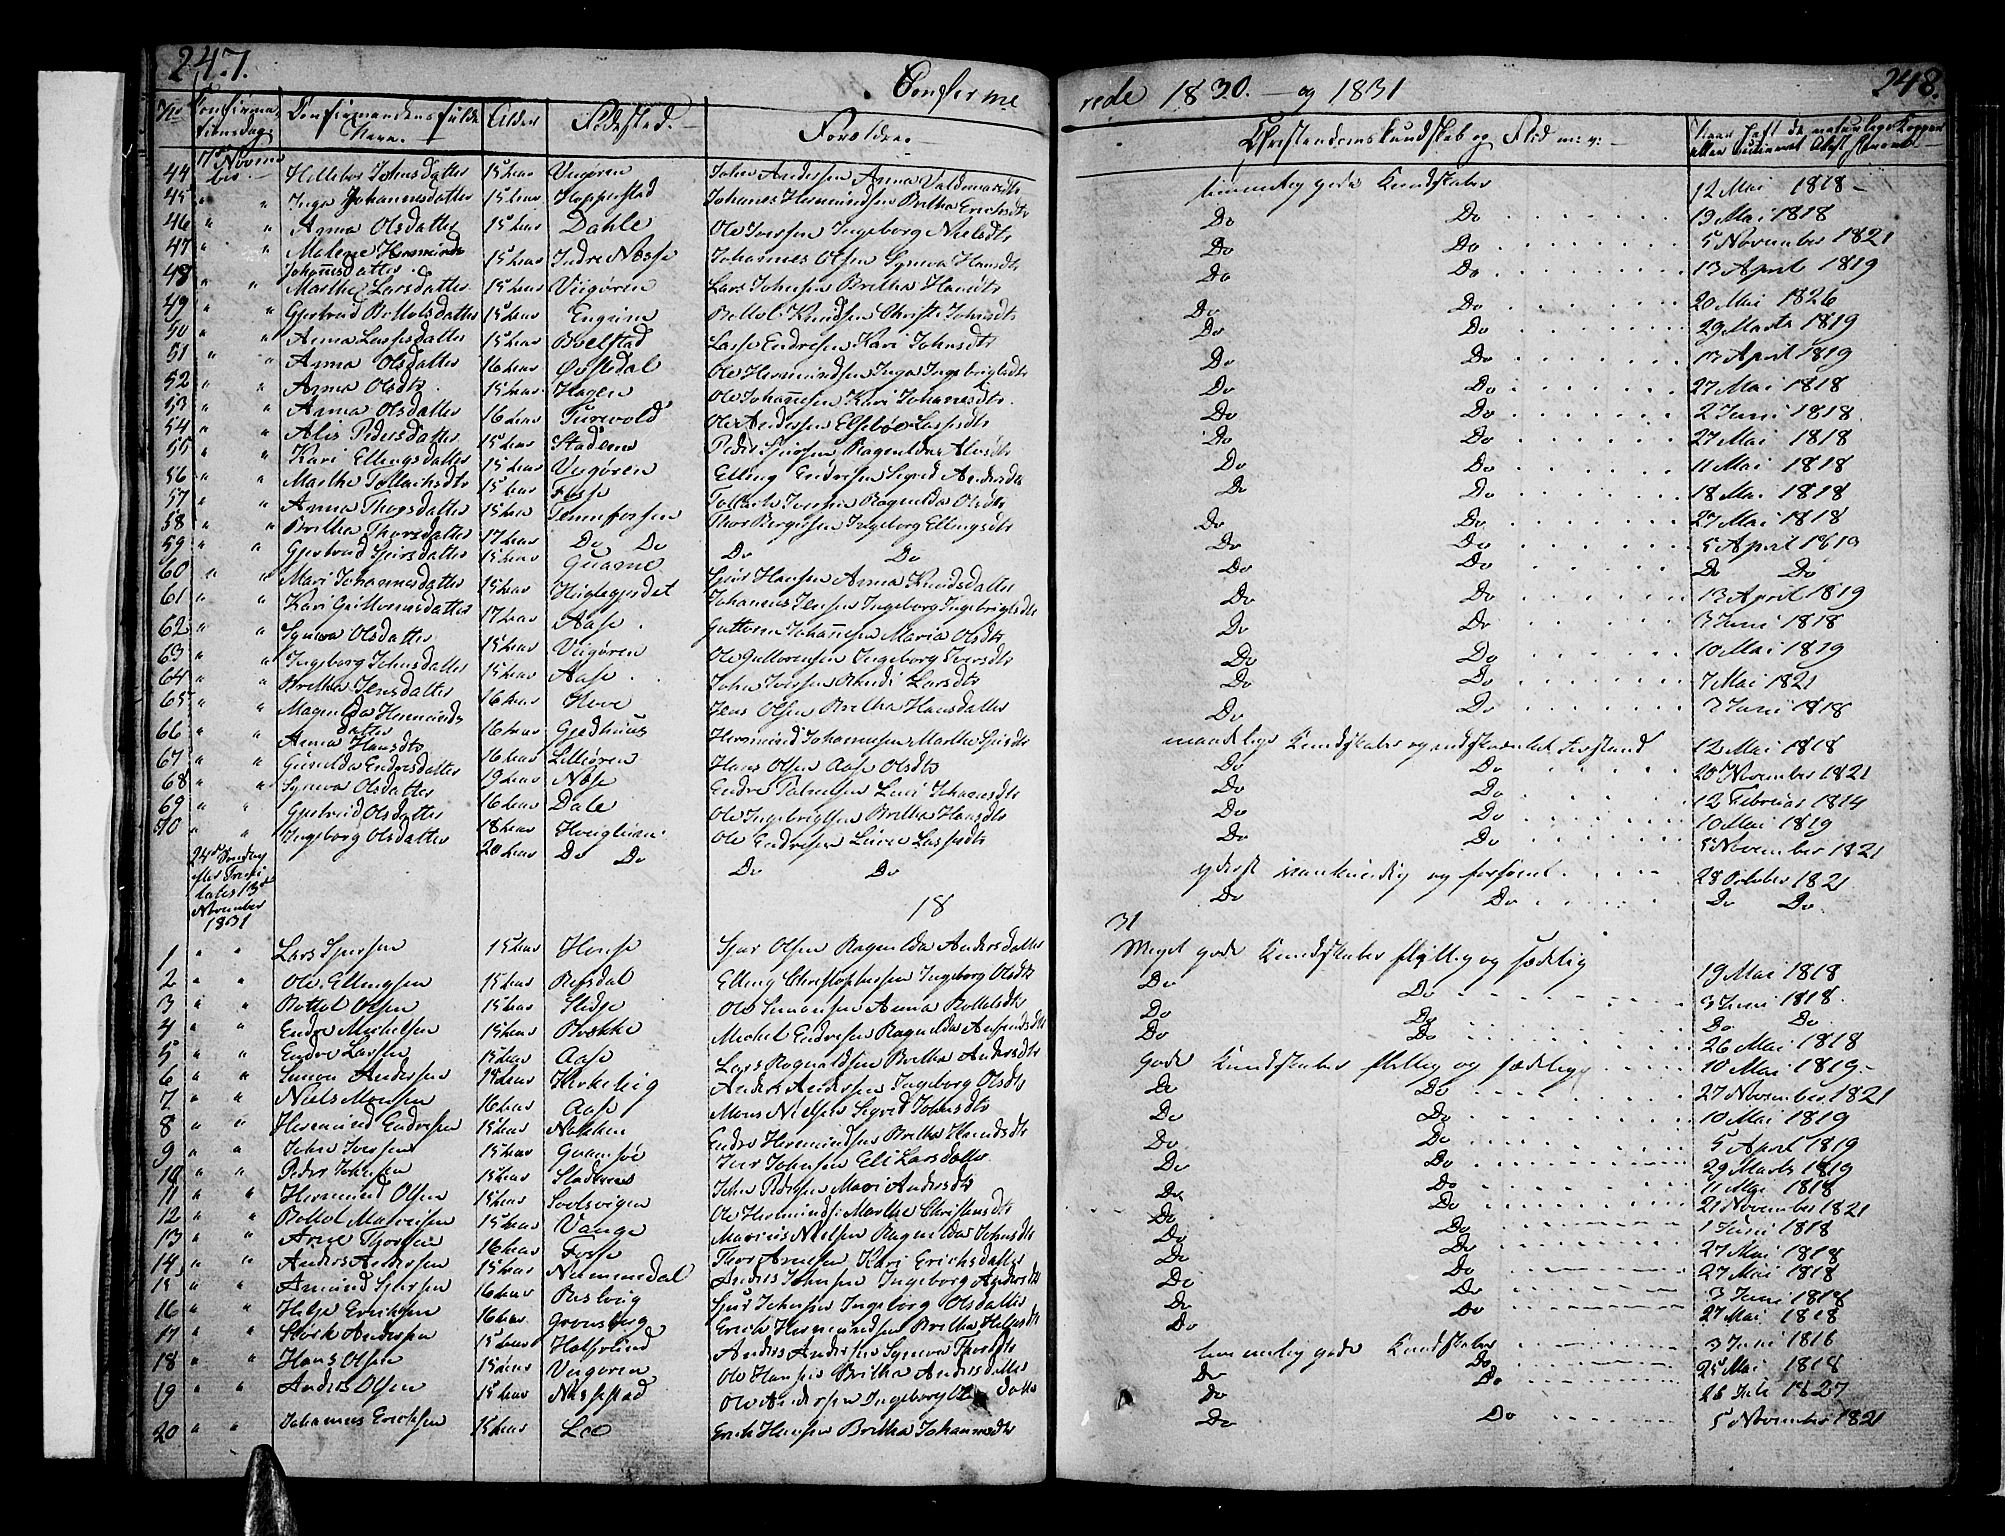 247.
Confirme
No
Confirma
tionsdag.
Confirmandens fulde
Navn.
Alder
Fødested.
Forældre.
Novem
ber.
44 Hellebor Johnsdatter 15 Aar Veigøren John Andersen Anna Valdemarsdtr
45 " " Inga Johannesdatter 15 Aar Hopperstad Johanes Hermundsen Britha Erichsdtr
46 " " Anna Olsdatter 15 Aar Dahle Ole Iversen Ingeborg Nielsdtr
47 " " Malene Hermunds 15 Aar Indre Nesse Johannes Olsen Synva Hansdtr
Johannesdatter.
48 " " Marthe Larsdatter 15 Aar Veigøren Lars Johnsen Britha Hansdtr
49 " " Gjertrud Bottolsdatter 15 Aar Engum Bottol Knudsen Christi Johnsdtr
50 " " Anna Lassesdatter 15 Aar Bøelstad Lasse Endresen Kari Johnsdtr
51 " " Anna Olsdatter 16 Aar Ovsthdal Ole Hermundsen Inga Ingebrigtsdtr
52 " " Anna Olsdtr. 15 Aar Hagen Ole Johannesen Kari Johannesdtr.
53 " " Anna Olsdatter 16 Aar Turvold Ole Andersen Ellsebøe Lassesdtr
54 " " Alis Pedersdatter 15 Aar Stadeim Peder Sjursen Ragnilda
55 " " Kari Ellingsdatter 15 Aar Veigøren Elling Endresen Sigrid Andersdtr
56 " " Marthe Tollachsdtr 15 Aar Fosse Tollach Iversen Ragnilda Olsdtr
57 " " Anna Thorsdatter 15 Aar Tennefossen Thor Ingeborg Ellingsdtr
58 " " Britha Thorsdatter 17 Aar Do Do Do Do
59 " " Gjertrud Sjursdatter 15 Aar Quame Sjur Hansen Anna Knudsdatter
60 " " Mari Johannesdatter 15 Aar Johannes Jensen Ingeborg Ingebrigtsdtr
61 " " Kari Guttormsdatter 17 Aar Aase. Guttorm Johannesen Maria Olsdtr
62 " " Synva Olsdatter 15 Aar Veigøren Ole Guttormsen Ingeborg Iversdtr
63 " " Ingeborg Johnsdatter 15 Aar Aase. John Iversen Randi Larsdtr
64 " " Britha Jensdatter 16 Aar Hove Jens Olsen Britha Hansdatter
65 " " Magnilda Hermunds 16 Aar Gjedhuus Hermund Johannesen Martha Sjursdtr
datter
66 " " Anna Hansdtr 16 Aar Lilleøren Hans Olsen Aase Olsdtr
67 " " Gunilda Endresdatter 19 Aar Nese Endre
68 " " Synva Olsdatter 16 Aar Dale Ole Ingebrigtsen Britha Hansdtr
69 " " Gjertrud Olsdatter 18 Aar Ole Endresen Lassesdtr
70 " " Ingeborg Olsdatter 20 Aar Do Do Do Do
24de Søndag
efter Trini
tatis 13de
November
1831
18
1 " " Lars Sjursen 15 Aar Hense Sjur Olsen Ragnilda Andersdatter
2 " " Ole Ellingsen 15 Aar Refsdal Elling Christophersen Ingeborg Olsdtr
3 " " Bottol Olsen 15 Aar Slidse Ole Simonsen Anna Bottolsdtr
4 " " Endre Michelsen 15 Aar Brekke Michel Endresen Ragnilda
5 " " Endre Larsen 15 Aar Aase Lars Ragnaldsen Britha Andersdtr
6 " " Simon Andersen Kirkelvig Anders Andersen Ingeborg Olsdtr
7 " " Niels Monsen 16 Aar Aase Mons Nielsen Sigrid Johnsdtr
8 " " Hermund Endresen 15 Aar Nøkken Endre Hermundsen Britha Hansdtr
9 " " John Iversen 15 Aar Quamsøe Iver Johnsen Eli Larsdatter
10 " " Peder Johnsen 15 Aar Stadeim John Pedersen Mari Andersdtr
11 " " Hermund Olsen 15 Aar Soolsvigen Ole Hermunds: Marthe Christensdtr
12 " " Bottol Mariusen 15 Aar Vange Marius Nielsen Ragnilda Johnsdtr
13 " " Arne Thorsen 16 Aar Fosse Thor Arnesen Kari Erichsdatter
14 " " Anders Andersen 15 Aar Nummedal Anders Johnsen Ingeborg Andersdtr
15 " " Amund Sjursen 16 Aar Sjur Johnsen Ingeborg Olsdatter
16 " " Helje Erichsen 16 Aar Grønsberg Erich Hermundsen Britha Heljesdtr
17 " " Størk Andersen 15 Aar Halsvund Anders Andersen Synva Thorsdtr
18 " " Hans Olsen 15 Aar Veigøren Ole Hansen Britha Andersdatter
19 " " Anders Olsen 15 Aar Nessestad Ole Andersen Ingeborg datter
20 " " Johannes Erichsen 15 Aar Lee Erich Hansen Britha Johannesdtr
rede 1830. — og 1831
248.
Christendomskundskab og Flid m: v:
Naar haft de naturlige Kopper
eller vaccineret
temmelig gode Kundskaber 12 Mai 1818
Do Do 19 Mai 1818
Do Do 5 November 1821
Do Do 13 April 1819
Do Do 20 Mai 1826
Do Do 29 Marts 1819
Do Do 13 April 1819
Do Do 27 Mai 1818
Do Do 2 Juni 1818.
Do Do 27 Mai 1818
Do Do 11 Mai 1818
Do Do 18 Mai 1818
Do Do 27 Mai 1818
Do Do 5 April 1819
Do Do Do Do
Do Do 13 April 1819
Do Do 3 Juni 1818
Do Do 10 Mai 1819
Do Do 7 Mai 1821
Do Do 3 Juni 1818
maadelige Kundskaber og indskrænket Forstand 12 Mai 1818
Do Do 20 November 1821
Do Do 12 Februar 1814
Do Do 10 Mai 1819
Do Do 5 November 1821
yderst vankundig og forsømt 28 October 1821
Do Do Do Do.
31
Meget gode Kundskaber flittig og sædelig 19 Mai 1818
Do Do 3 Juni 1818.
Do Do Do Do.
Do Do 26 Mai 1818
Gode Kundskaber flittig og sædelig 10 Mai 1819
Do Do 27 November 1821
Do Do 10 Mai 1819
Do Do 5 April 1819
Do Do 29 Marts 1819
Do Do 11 Mai 1818
Do Do 21 November 1821
Do Do 1 Juni 1818
Do Do 27 Mai 1818
Do Do 27 Mai 1818
Do Do 3 Juni 1818
Do Do 27 Mai 1818
temmelig gode Kundskaber 3 Juni 1816
Do Do 25 Mai 1818
Do Do 26 Juli 1827
Do Do 5 November 1821